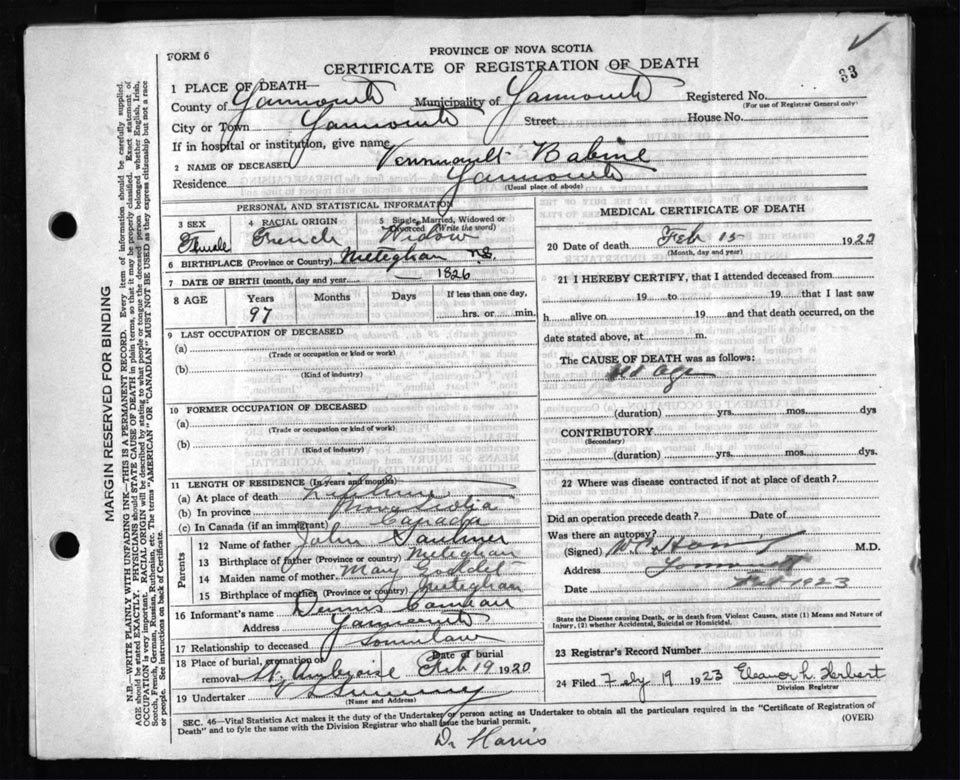 33
FORM 6
PROVINCE OF NOVA SCOTIA
CERTIFICATE OF REGISTRATION OF DEATH
1 PLACE OF DEATH—
County of Yarmouth Municipality of Yarmouth Registered No.
(For use of Registrar General only)
City or Town Yarmouth Street House No.
If in hospital or institution, give name
2 NAME OF DECEASED Babine
Residence Yarmouth
(Usual place of abode)
PERSONAL AND STATISTICAL INFORMATION
3 SEX 4 RACIAL ORIGIN 5 Single, Married, Widowed or Divorced (Write the word)
Female French Widow
6 BIRTHPLACE (Province or Country) Meteghan N.S.
7 DATE OF BIRTH (month, day and year) 1826
8 AGE Years Months Days If less than one day,
97 hrs. or min.
9 LAST OCCUPATION OF DECEASED
(a)
(Trade or occupation or kind or work)
(b)
(Kind of industry)
10 FORMER OCCUPATION OF DECEASED
(a)
(Trade or occupation or kind or work)
(b)
(Kind of industry)
11 LENGTH OF RESIDENCE (In years and months)
(a) At place of death Lifetime
(b) In province Nova Scotia
(c) In Canada (if an immigrant) Canada
Parents
12 Name of father John Saulnier
13 Birthplace of father (Province or country) Meteghan
14 Maiden name of mother Mary
15 Birthplace of mother (Province or country) Meteghan
16 Informant's name Dennis Comeau
Address Yarmouth
17 Relationship to deceased Soninlaw
18 Place of burial, cremation or removal St. Ambroise Date of burial Feb 19 1920
19 Undertaker V S Sweeney
(Name and Address)
MEDICAL CERTIFICATE OF DEATH
20 Date of death Feb 15 1923
(Month, day and year)
21 I HEREBY CERTIFY, that I attended deceased from
19 to 19 that I last saw
h alive on 19 and that death occurred, on
date stated above, at m.
The CAUSE OF DEATH was as follows:
Old Age
(duration) yrs. mos. dys
CONTRIBUTORY
(Secondary)
(duration) yrs. mos. dys.
22 Where was disease contracted if not at place of death?
Did an operation precede death? Date of
Was there an autopsy?
(Signed) M.D.
Address Yarmouth
Date Feb 1923
State the Disease causing Death, or in death from Violent Causes, state (1) Means and Nature of
Injury, (2) whether Accidental, Suicidal or Homicidal.
23 Registrar's Record Number
24 Filed Feby 19 1923 Eleanor L. Herbert
Division Registrar
SEC. 46—Vital Statistics Act makes it the duty of the Undertaker or person acting as Undertaker to obtain all the particulars required in the "Certificate of Registration of
Death" and to fyle the same with the Division Registrar who shall issue the burial permit.
(OVER)
Dr Harris
MARGIN RESERVED FOR BINDING
N.B.—WRITE PLAINLY WITH UNFADING INK—THIS IS A PERMANENT RECORD. Every item of information should be carefully supplied.
AGE should be stated EXACTLY. PHYSICIANS should STATE CAUSE OF DEATH in plain terms, so that it may be properly classified. Exact statement of
OCCUPATION is very important. RACIAL ORIGIN will be described by stating to what people or tongue the deceased person belonged whether English, Irish,
Scotch, French, German, Russian, Ruthenian, etc. The terms "AMERICAN" or "CANADIAN" MUST NOT BE USED as they express citizenship but not a race
or people. See instructions on back of Certificate.